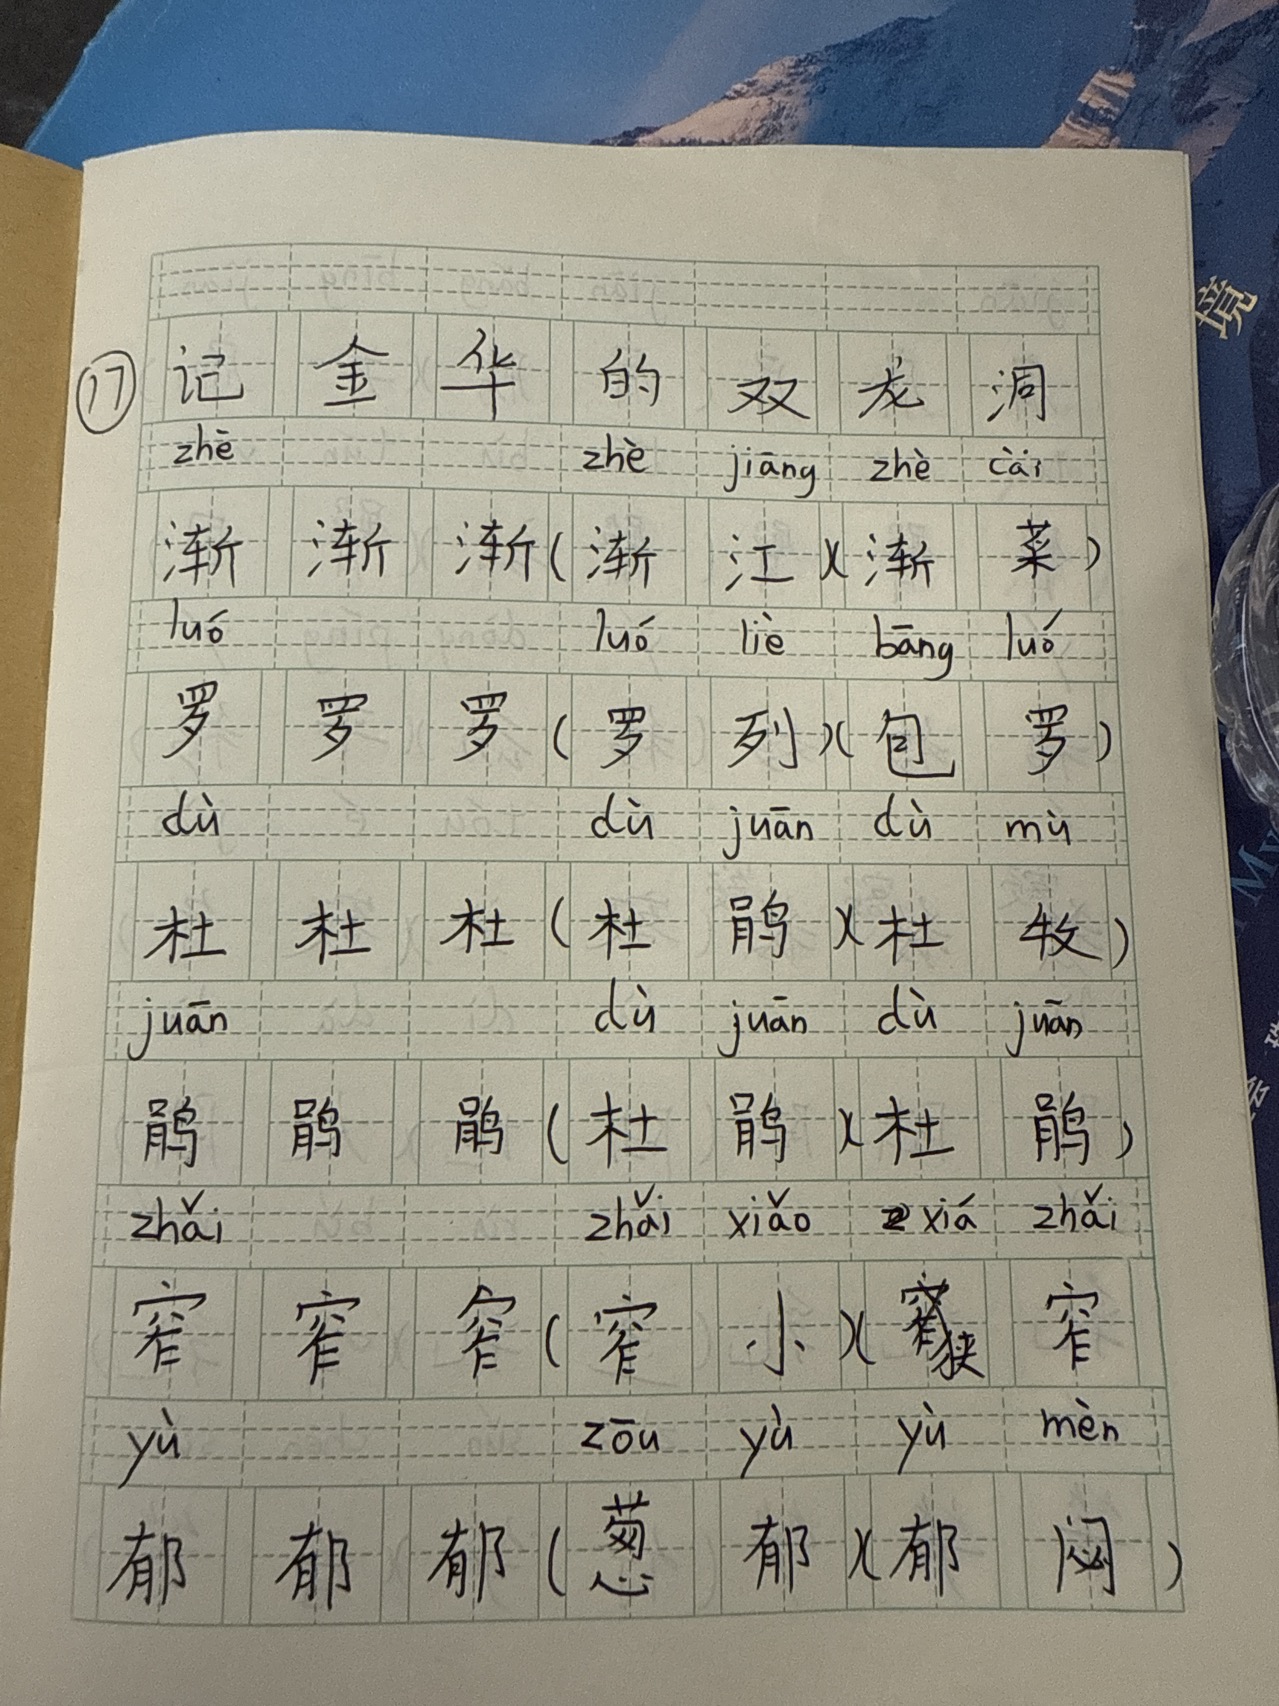 ⑰ 记金华的双龙洞
zhè zhè jiāng zhè cài
渐 渐 渐(渐江)(渐菜)
luó luó liè bāng luó
罗 罗 罗(罗列)(包罗)
dù dù juān dù mù
杜 杜 杜(杜鹃)(杜牧)
juān dù juān dù juān
鹃 鹃 鹃(杜鹃)(杜鹃)
zhǎi zhǎi xiǎo xiá zhǎi
窄 窄 窄(窄小)(狭窄)
yù zōu yù yù mèn
郁 郁 郁(葱郁)(郁闷)
境
My